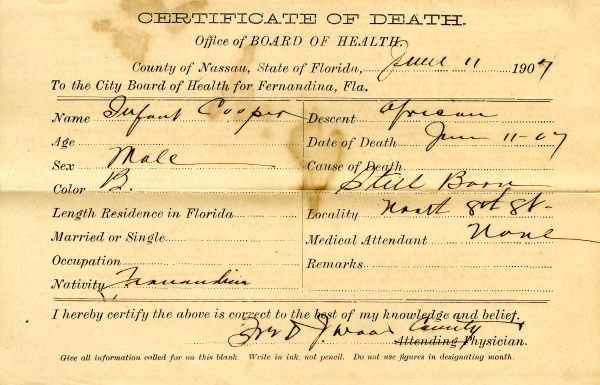 CERTIFICATE OF DEATH.
Office of BOARD OF HEALTH.
County of Nassau, State of Florida, June 11 1907
To the City Board of Health for Fernandina, Fla.
Name Infant Cooper
Age
Sex Male
Color B.
Length Residence in Florida
Married or Single
Occupation
Nativity Fernandina
Descent African
Date of Death June 11-07
Cause of Death
Still Born
Locality North 8th St-
Medical Attendant None
Remarks
I hereby certify the above is correct to the best of my knowledge and belief.
J. Wood County
Attending Physician.
Give all information called for on this blank. Write in ink, not pencil. Do not use figures in designating month.